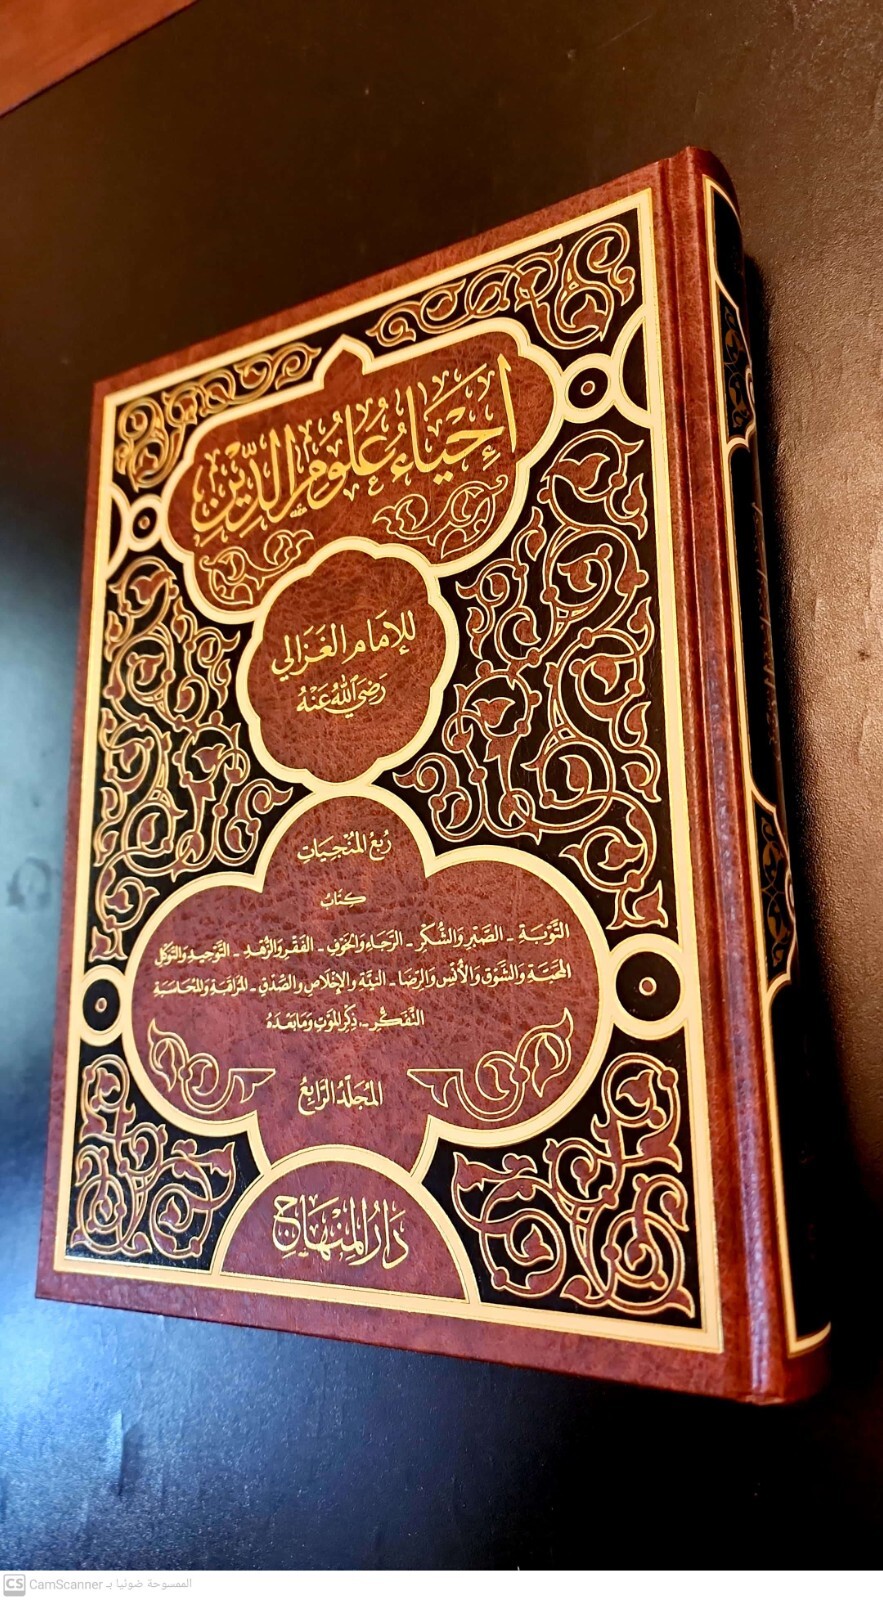 إحياء علوم الدين
للإمام الغزالي
رضي الله عنه
ربع المنجيات
كتاب
التوبة - الصبر والشكر - الرجاء والخوف - الفقر والزهد - التوحيد والتوكل
المحبة والشوق والأنس والرضا - النية والإخلاص والصدق - المراقبة والمحاسبة
التفكر - ذكر الموت وما بعده
المجلد الرابع
دار المنهاج
CS CamScanner الممسوحة ضوئيا بـ